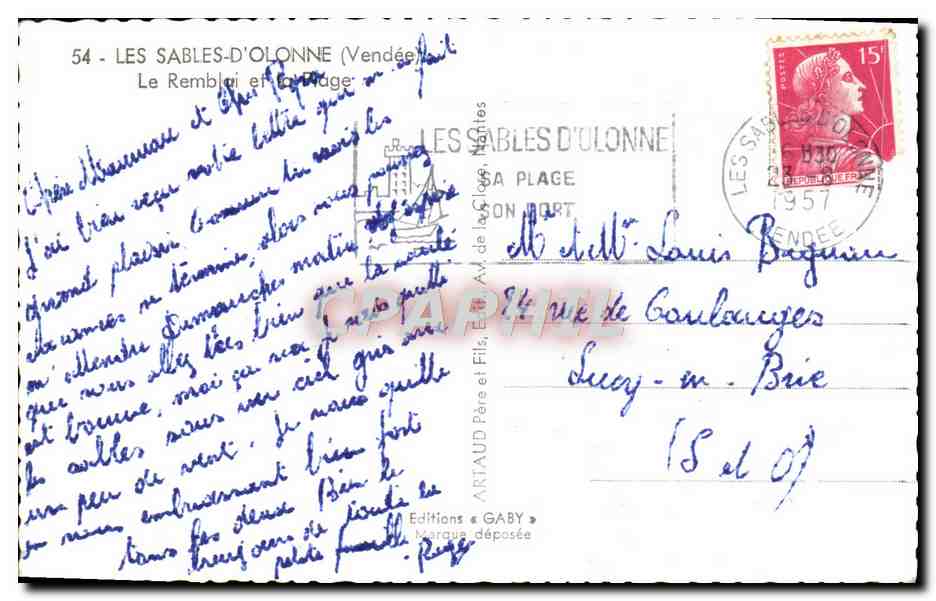 54 - LES SABLES-D'OLONNE (Vendée)
Le Remblai et la Plage
Chère Maman et cher Papa
J'ai bien reçu votre lettre qui m'a fait
grand plaisir. Comme tu vois les
vacances se terminent, alors vous pouvez
m'attendre Dimanche matin. J'espère
que vous allez très bien que la santé
est bonne, moi ça va. Je vais quitter
les sables sous un ciel gris avec
un peu de vent. Je vous quitte
en vous embrassant bien fort
tous les deux. Bien le
bonjour de toute la
petite famille
Roger
ARTAUD Père et Fils, Edit., Av. de la Gloire, Nantes
Editions « GABY »
Marque déposée
LES SABLES D'OLONNE
SA PLAGE
SON PORT
POSTES
15F
REPUBLIQUE FR
LES SABLES D'OLONNE
1957
VENDEE
Mr et Mme Louis
24 rue de Coulanges
Sucy-en-Brie
(S et O)
CPAPHIL